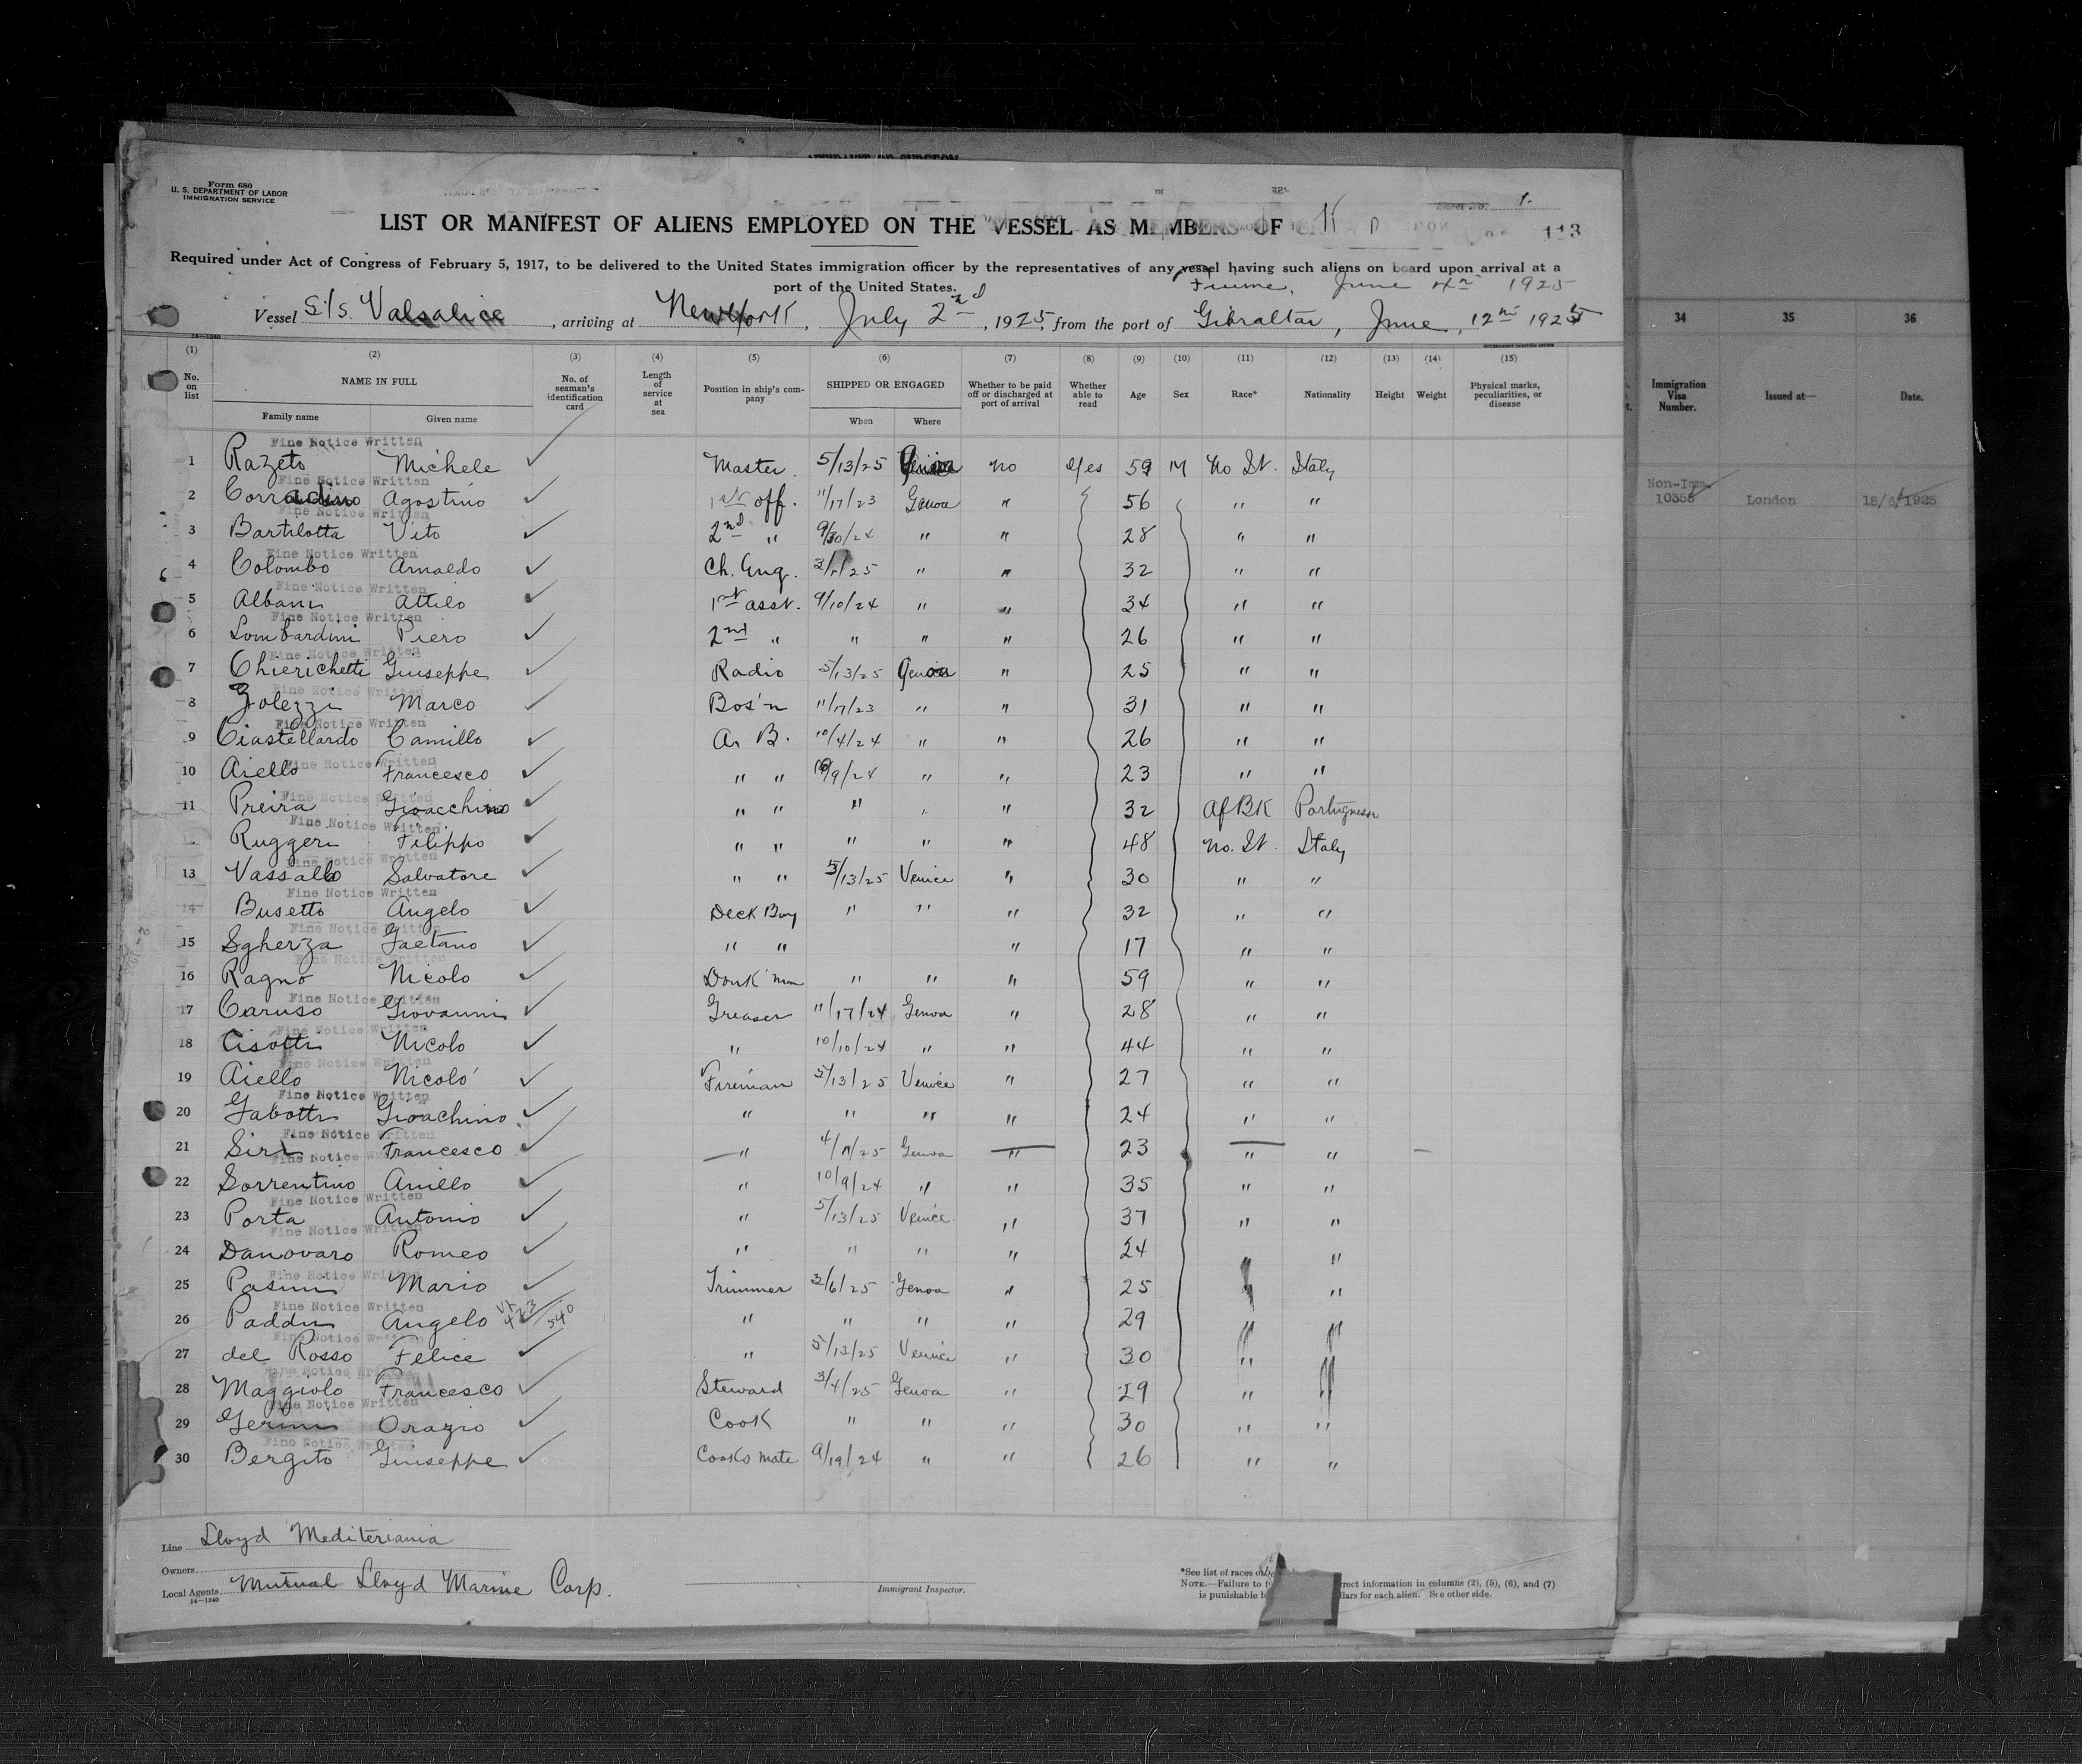 Form 680
U. S. DEPARTMENT OF LABOR
IMMIGRATION SERVICE
Sheet No. 1.
LIST OR MANIFEST OF ALIENS EMPLOYED ON THE VESSEL AS MEMBERS OF
113
Required under Act of Congress of February 5, 1917, to be delivered to the United States immigration officer by the representatives of any vessel having such aliens on board upon arrival at a
port of the United States.
Fiume, June 4th 1925
Vessel S/S. Valsalice, arriving at New York, July 2nd, 1925, from the port of Gibraltar, June, 12th 1925
14—1240
(1) (2) (3) (4) (5) (6) (7) (8) (9) (10) (11) (12) (13) (14) (15)
No. on list NAME IN FULL Family name Given name No. of seaman's identification card Length of service at sea Position in ship's company SHIPPED OR ENGAGED When Where Whether to be paid off or discharged at port of arrival Whether able to read Age Sex Race* Nationality Height Weight Physical marks, peculiarities, or disease
34 35 36
Immigration Visa Number. Issued at— Date.
Fine Notice Written
1 Razeto Michele Master. 5/13/25 Genoa no Yes 59 M No It. Italy
Fine Notice Written
2 Corradino Agostino 1st off. 11/17/23 Genoa " 56 " "
Non-Imm. 10355 London 18/6/1925
Fine Notice Written
3 Bartilotta Vito 2nd " 9/30/24 " " 28 " "
Fine Notice Written
4 Colombo Arnaldo Ch. Eng. 3/1/25 " " 32 " "
Fine Notice Written
5 Albani Attilo 1st asst. 9/10/24 " " 34 " "
Fine Notice Written
6 Lombardini Piero 2nd " " " " 26 " "
Fine Notice Written
7 Chierichetti Giuseppe Radio 5/13/25 Genoa " 25 " "
Fine Notice Written
8 Zolezzi Marco Bos'n 11/17/23 " " 31 " "
Fine Notice Written
9 Ciastellardo Camillo A. B. 10/4/24 " " 26 " "
Fine Notice Written
10 Aiello Francesco " " 10/9/24 " " 23 " "
Fine Notice Written
11 Preira Gioacchino " " " " " 32 Af BK Portuguese
Fine Notice Written
12 Ruggeri Filippo " " " " " 48 No. It. Italy
Fine Notice Written
13 Vassallo Salvatore " " 5/13/25 Venice " 30 " "
Fine Notice Written
14 Busetto Angelo Deck Boy " " " 32 " "
Fine Notice Written
15 Sgherza Gaetano " " " 17 " "
Fine Notice Written
16 Ragno Nicolo Donk'man " " " 59 " "
Fine Notice Written
17 Caruso Giovanni Greaser 11/17/24 Genoa " 28 " "
Fine Notice Written
18 Cisotti Nicolo " 10/10/24 " " 44 " "
Fine Notice Written
19 Aiello Nicolo' Fireman 5/13/25 Venice " 27 " "
Fine Notice Written
20 Gabotti Gioachino. " " " " 24 " "
Fine Notice Written
21 Siri Francesco " 4/11/25 Genoa " 23 " "
Fine Notice Written
22 Sorrentino Anillo " 10/9/24 " " 35 " "
Fine Notice Written
23 Porta Antonio " 5/13/25 Venice " 37 " "
Fine Notice Written
24 Danovaro Romeo " " " " 24 " "
Fine Notice Written
25 Pasini Mario Trimmer 3/6/25 Genoa " 25 " "
Fine Notice Written
26 Paddu Angelo " " " " 29 " "
Fine Notice Written
27 del Rosso Felice " 5/13/25 Venice " 30 " "
Fine Notice Written
28 Maggiolo Francesco Steward 3/4/25 Genoa " 29 " "
Fine Notice Written
29 Gerini Orazio Cook " " " 30 " "
Fine Notice Written
30 Bergito Giuseppe Cooks mate 9/19/24 " " 26 " "
Line Lloyd Mediteriania
Owners
Local Agents Mutual Lloyd Marine Corp.
14—1240
Immigrant Inspector.
*See list of races on
NOTE.—Failure to rrect information in columns (2), (5), (6), and (7)
is punishable b llars for each alien. See other side.